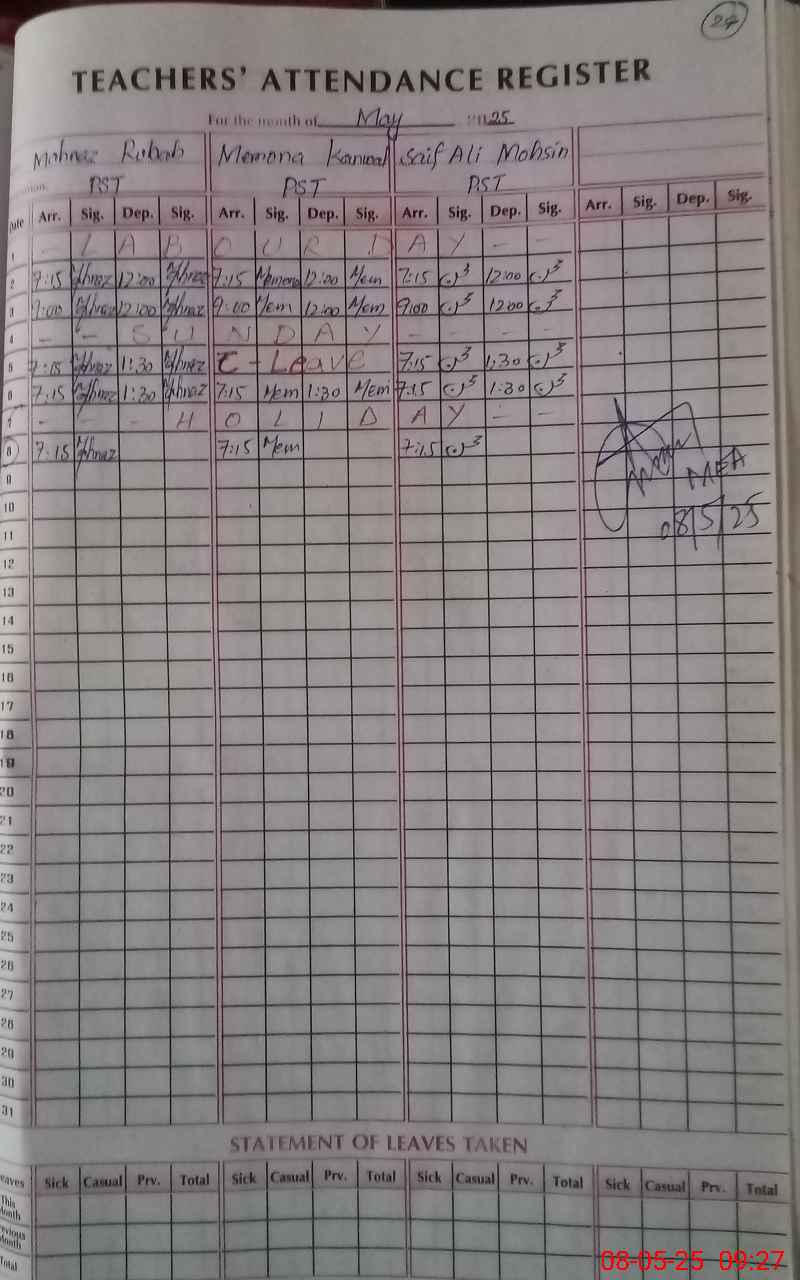 24
TEACHERS' ATTENDANCE REGISTER
For the month of May 2025
Mohnaz Rubab Memona Kanwal Saif Ali Mohsin
PST PST PST
Date Arr. Sig. Dep. Sig. Arr. Sig. Dep. Sig. Arr. Sig. Dep. Sig. Arr. Sig. Dep. Sig.
1 - L A B O U R D A Y - -
2 7:15 12:00 7:15 Memona 12:00 Mem 7:15 12:00
3 9:00 12:00 9:00 Mem 12:00 Mem 9:00 12:00
4 - - S U N D A Y - - - -
5 7:15 1:30 C - Leave 7:15 1:30
6 7:15 1:30 7:15 Mem 1:30 Mem 7:15 1:30
7 - - - H O L I D A Y - -
8 7:15 7:15 Mem 7:15
MEA
9
10
08/5/25
11
12
13
14
15
16
17
18
19
20
21
22
23
24
25
26
27
28
29
30
31
STATEMENT OF LEAVES TAKEN
eaves Sick Casual Prv. Total Sick Casual Prv. Total Sick Casual Prv. Total Sick Casual Prv. Total
This
Month
evious
Month
Total
08-05-25 09:27